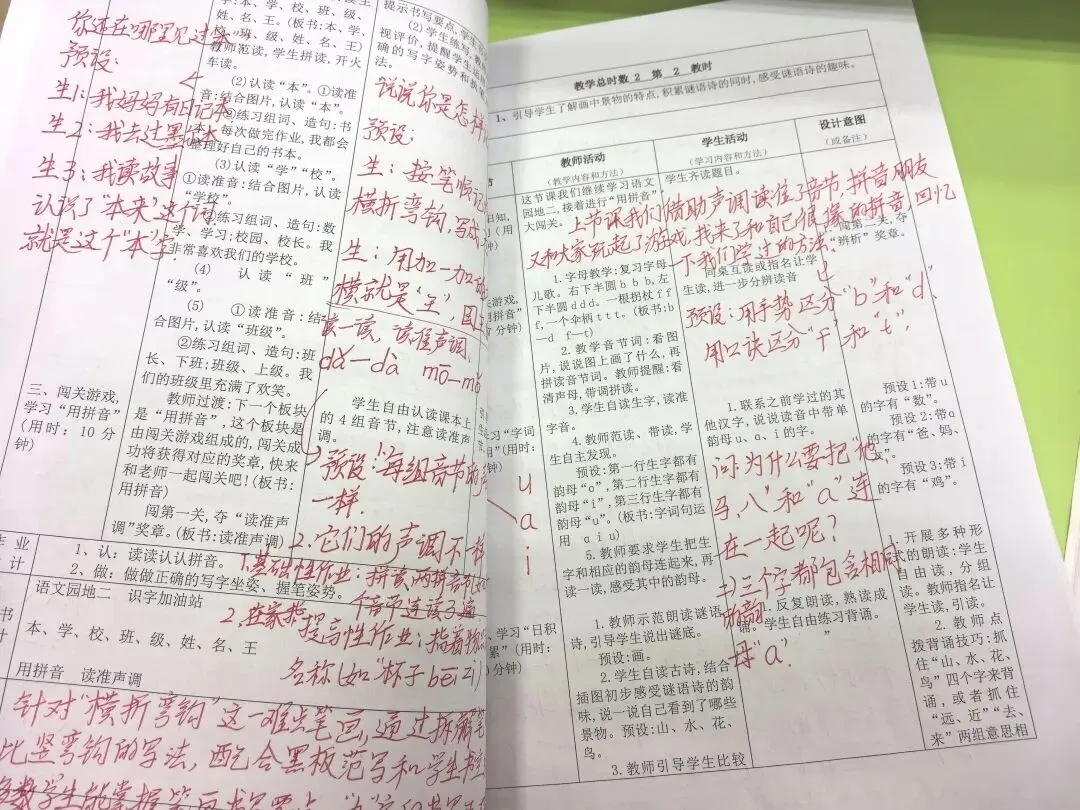 你还在哪里见过"本"
预设:
生1:我妈妈有日记本
生2:我去过
生3:我读故事
认识了"本来"这个词
就是这个"本"字.
本、学、校、班、级、
姓、名、王。(板书:本、
学、校、班、级、姓、名、王)
教师范读,学生拼读,开火
车读。
(2)认读“本”。①读准
音:结合图片,认读“本”。
②练习组词、造句:书
本。每次做完作业,我都会
整理好自己的书本。
(3)认读“学”“校”。
①读准音:结合图片,认读
“学校”。
②练习组词、造句:数
学、学习;校园、校长。我
非常喜欢我们的学校。
(4) 认读“班”
“级”。
(5) ①读准音:结
合图片,认读“班级”。
②练习组词、造句:班
长、下班;班级、上级。我
们的班级里充满了欢笑。
教师过渡:下一个板块
是“用拼音”,这个板块是
由闯关游戏组成的,闯关成
功将获得对应的奖章,快来
和老师一起闯关吧!(板书:
用拼音)
闯第一关,夺“读准声
调”奖章。(板书:读准声调)
三、闯关游戏,
学习“用拼音”
(用时:10分
钟)
提示书写要点,学生
(2)学生练写,教
视评价,提醒学生
确的写字姿势和执
法。
说说你是怎样
预设:
生:按笔顺记
横折弯钩,写成
生:用加一加
横就是"王",
读一读,读准声调.
dǎ—dà mō—mó
学生自由认读课本上
的4组音节,注意读准声
调。
预设:1.每组音节的
一样.
2.它们的声调不一样
1、认:读读认认拼音。
2、做:做做正确的写字坐姿、握笔姿势。
1.基础性作业:拼读两拼音节
个音节连读3遍
2.在家 提高性作业:指着物品
名称(如"杯子 bēi zi)
语文园地二 识字加油站
本、学、校、班、级、姓、名、王
用拼音 读准声调
针对"横折弯钩"这一难点笔画,通过拆解笔
比竖弯钩的写法,配合黑板范写和学生
教学总时数 2 第 2 教时
1、引导学生了解画中景物的特点,积累谜语诗的同时,感受谜语诗的趣味。
教师活动
(教学内容和方法)
学生活动
(学习内容和方法)
设计意图
(或备注)
这节课我们继续学习语文
园地二,接着进行“用拼音”
大闯关。
学生齐读题目。
上节课我们借助声调读准了音节,拼音朋友
又和大家玩起了游戏,我来了和自己很像的拼音,回忆
下我们学过的方法.
1.字母教学:复习字母
儿歌。右下半圆 b b b,左
下半圆 d d d。一根拐杖 f f
f,一个伞柄 t t t。(板书:b
—d f—t)
2.教学音节词:看图
片,说说图上画了什么,再
拼读音节词。教师提醒:看
清声母,带调拼读。
3.学生自读生字,读准
字音。
4.教师范读、带读,学
生自主发现。
预设:第一行生字都有
韵母“ɑ”,第二行生字都有
韵母“i”,第三行生字都有
韵母“u”。(板书:字词句运
用 ɑ i u)
5.教师要求学生把生
字和相应的韵母连起来,再
读一读,感受其中的韵母。
u
a
i
同桌互读或指名让学
生读,进一步分辨读音
预设:用手势区分"b"和"d、
用口诀区分"f"和"t".
闯第二关,夺
“辨析”奖章。
1.联系之前学过的其
他汉字,说说读音中带单
韵母 u、ɑ、i 的字。
问:为什么要把"他
马,八"和"a"连
在一起呢?
三个字都包含相同
的韵
母"a".
预设1:带 u
的字有“数”。
预设2:带 ɑ
的字有“爸、妈、
预设3:带 i
的字有“鸡”。
1.教师示范朗读谜语
诗,引导学生说出谜底。
预设:画。
2.学生自读古诗,结合
插图初步感受谜语诗的韵
味,说一说自己看到了哪些
景物。预设:山、水、花、
鸟。
3.教师引导学生比较
反复朗读,熟读成
诵。学生自由练习背诵。
开展多种形
式的朗读:学生
自由读,分组
读。教师指名让
学生读,引读。
2.教师点
拨背诵技巧:抓
住“山、水、花、
鸟”四个字来背
诵,或者抓住
“远、近”“去、
来”两组意思相